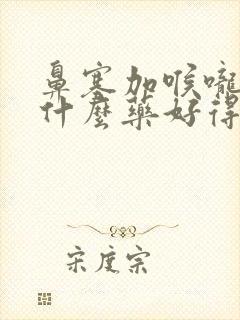 鼻塞加喉嚨
什麼藥好得
宋度宗